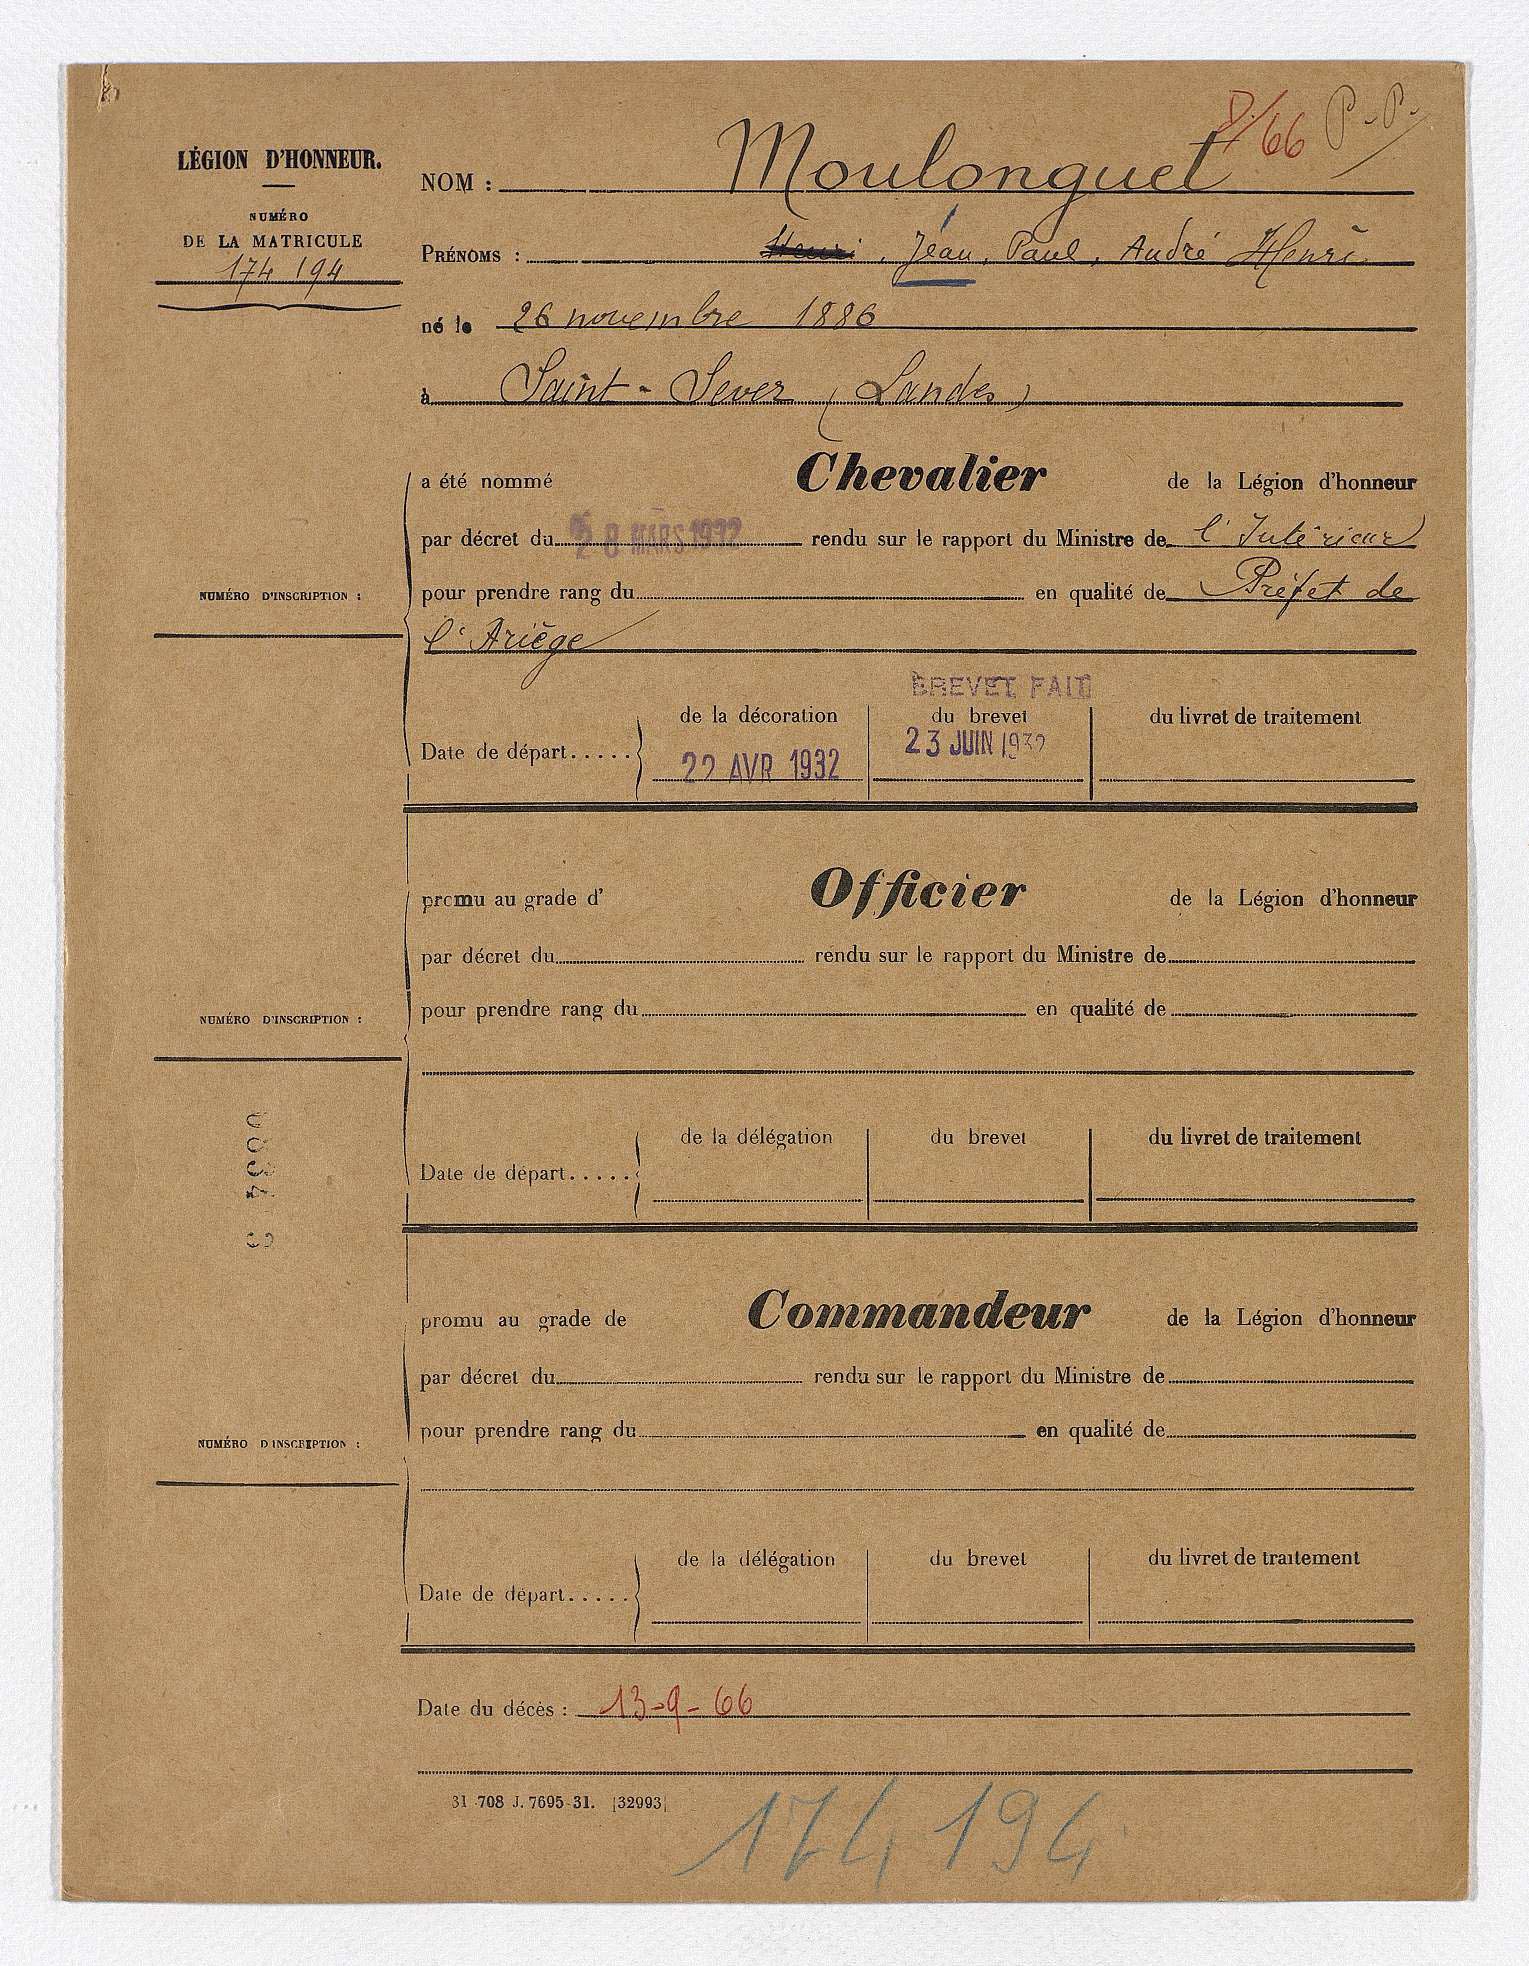 D/66 P.-P.
LÉGION D'HONNEUR.
NUMÉRO
DE LA MATRICULE
174 194
NOM : Moulonguet
PRÉNOMS : Henri . Jean, Paul, André Henri
né le 26 novembre 1886
à Saint-Sever (Landes)
a été nommé Chevalier de la Légion d'honneur
par décret du 28 MARS 1932 rendu sur le rapport du Ministre de l'Intérieur
NUMÉRO D'INSCRIPTION :
pour prendre rang du en qualité de Préfet de
l'Ariège
BREVET FAIT
de la décoration du brevet du livret de traitement
Date de départ..... 22 AVR 1932 23 JUIN 1932
promu au grade d' Officier de la Légion d'honneur
par décret du rendu sur le rapport du Ministre de
NUMÉRO D'INSCRIPTION :
pour prendre rang du en qualité de
de la délégation du brevet du livret de traitement
Date de départ.....
promu au grade de Commandeur de la Légion d'honneur
par décret du rendu sur le rapport du Ministre de
NUMÉRO D'INSCRIPTION :
pour prendre rang du en qualité de
de la délégation du brevet du livret de traitement
Date de départ.....
Date du décès : 13-9-66
31-708 J. 7695-31. [32993]
174 194